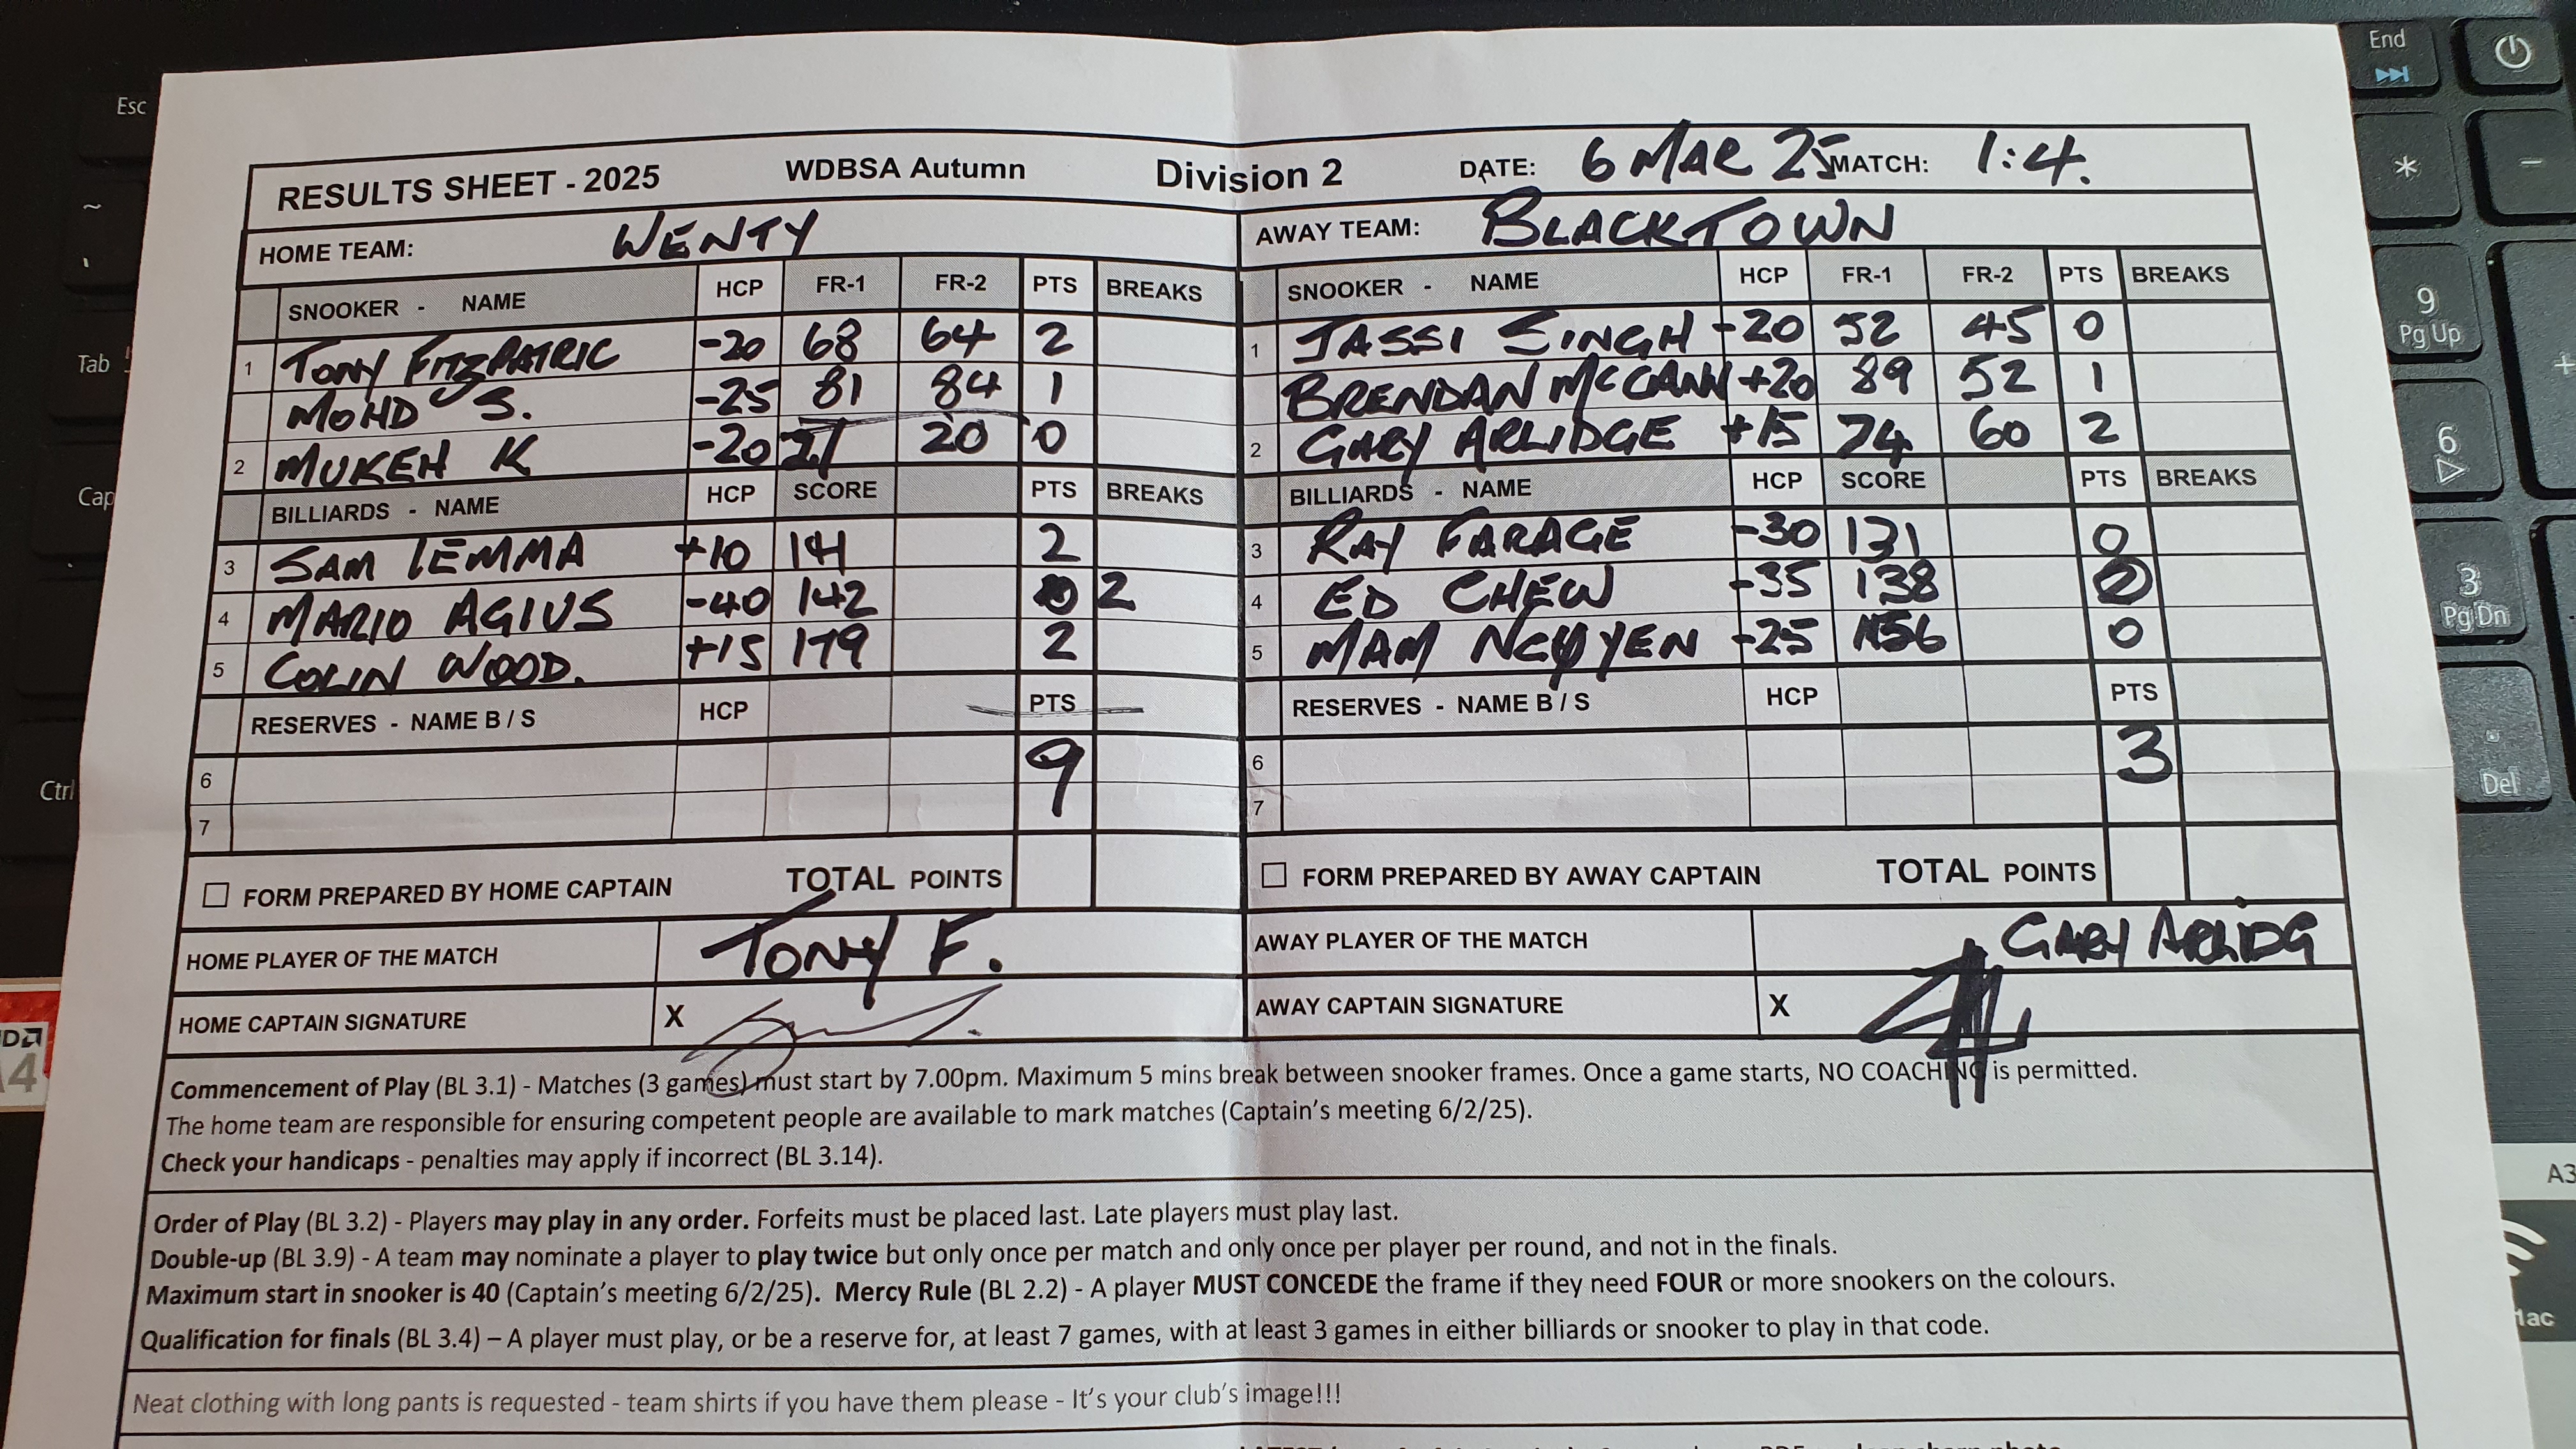 RESULTS SHEET - 2025 WDBSA Autumn Division 2 DATE: 6 MAR 25 MATCH: 1:4.
HOME TEAM: WENTY AWAY TEAM: BLACKTOWN
SNOOKER - NAME HCP FR-1 FR-2 PTS BREAKS SNOOKER - NAME HCP FR-1 FR-2 PTS BREAKS
1 TONY FITZPATRIC -20 68 64 2 1 JASSI SINGH -20 52 45 0
MOHD S. -25 81 84 1 BRENDAN MCCANN +20 89 52 1
2 MUKEH K -20 20 0 2 GARY ARLIDGE +15 74 60 2
BILLIARDS - NAME HCP SCORE PTS BREAKS BILLIARDS - NAME HCP SCORE PTS BREAKS
3 SAM IEMMA +10 141 2 3 RAY FARAGE -30 131 0
4 MARIO AGIUS -40 142 2 4 ED CHEW -35 138
5 COLIN WOOD. +15 179 2 5 MAM NGUYEN -25 156 0
RESERVES - NAME B / S HCP PTS RESERVES - NAME B / S HCP PTS
6 9 6 3
7 7
FORM PREPARED BY HOME CAPTAIN TOTAL POINTS FORM PREPARED BY AWAY CAPTAIN TOTAL POINTS
HOME PLAYER OF THE MATCH TONY F. AWAY PLAYER OF THE MATCH GARY ARLIDG
HOME CAPTAIN SIGNATURE X AWAY CAPTAIN SIGNATURE X
Commencement of Play (BL 3.1) - Matches (3 games) must start by 7.00pm. Maximum 5 mins break between snooker frames. Once a game starts, NO COACHING is permitted.
The home team are responsible for ensuring competent people are available to mark matches (Captain's meeting 6/2/25).
Check your handicaps - penalties may apply if incorrect (BL 3.14).
Order of Play (BL 3.2) - Players may play in any order. Forfeits must be placed last. Late players must play last.
Double-up (BL 3.9) - A team may nominate a player to play twice but only once per match and only once per player per round, and not in the finals.
Maximum start in snooker is 40 (Captain's meeting 6/2/25). Mercy Rule (BL 2.2) - A player MUST CONCEDE the frame if they need FOUR or more snookers on the colours.
Qualification for finals (BL 3.4) – A player must play, or be a reserve for, at least 7 games, with at least 3 games in either billiards or snooker to play in that code.
Neat clothing with long pants is requested - team shirts if you have them please - It's your club's image!!!
Esc
~
Tab
Cap
Ctrl
End
*
−
9
Pg Up
+
6
3
Pg Dn
.
Del
A3